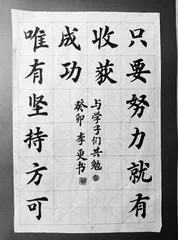 只要努力就有
收获
唯有坚持方可
成功
与学子们共勉
癸卯 李更书